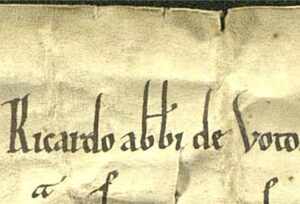 Ricardo abbi de Voto
a f f